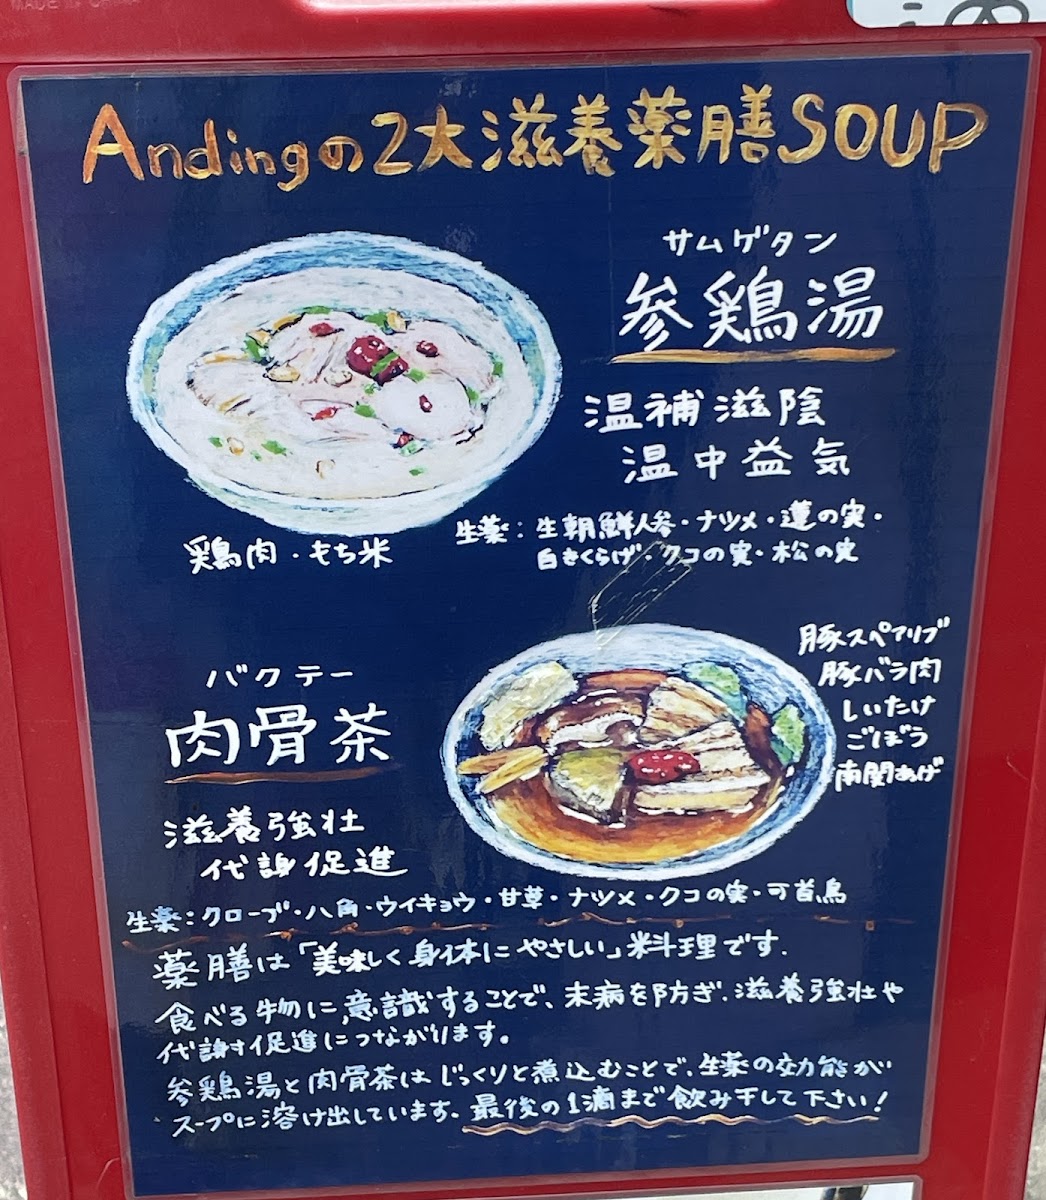 Andingの2大滋養薬膳SOUP
サムゲタン
参鶏湯
温補滋陰
温中益気
生薬：生朝鮮人参・ナツメ・蓮の実・
白きくらげ・クコの実・松の実
鶏肉・もち米
豚スペアリブ
豚バラ肉
しいたけ
ごぼう
南関あげ
バクテー
肉骨茶
滋養強壮
代謝促進
生薬：クローブ・八角・ウイキョウ・甘草・ナツメ・クコの実・可首烏
薬膳は「美味しく身体にやさしい」料理です．
食べる物に意識することで、未病を防ぎ．滋養強壮や
代謝促進につながります。
参鶏湯と肉骨茶はじっくりと煮込むことで、生薬の効能が
スープに溶け出しています．最後の1滴まで飲み干して下さい！